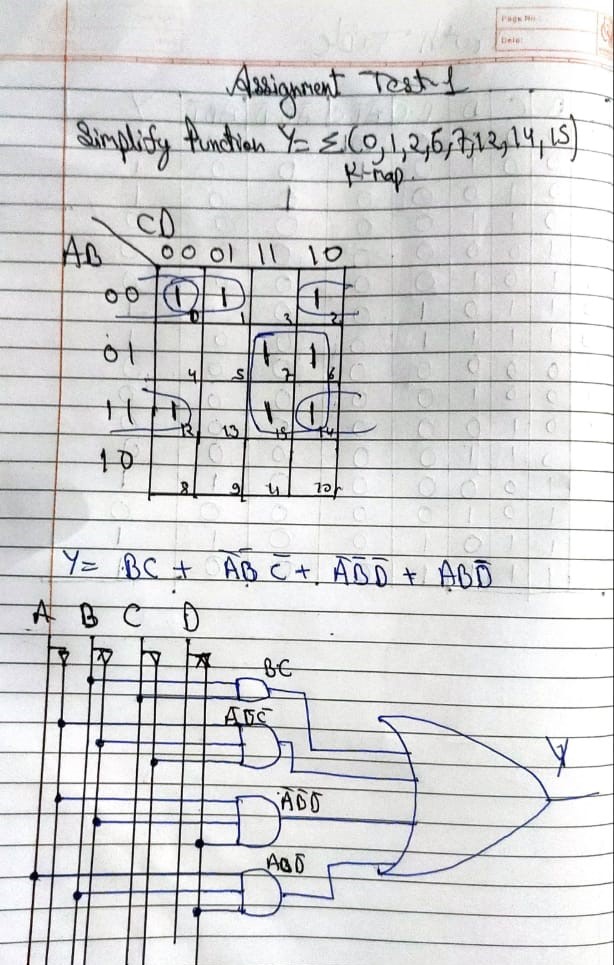 Page No:
Date:
Assignment Test-1
Simplify function Y= Σ(0,1,2,6,7,12,14,15)
K-map.
CD
AB 00 01 11 10
00 1 0 1 1 3 1 2
01 4 5 1 7 1 6
11 1 12 13 1 15 1 14
10 8 9 11 10
Y= BC + A̅B̅C̅ + A̅B̅D̅ + ABD̅
A B C D
BC
A̅B̅C̅
A̅B̅D̅
Y
ABD̅